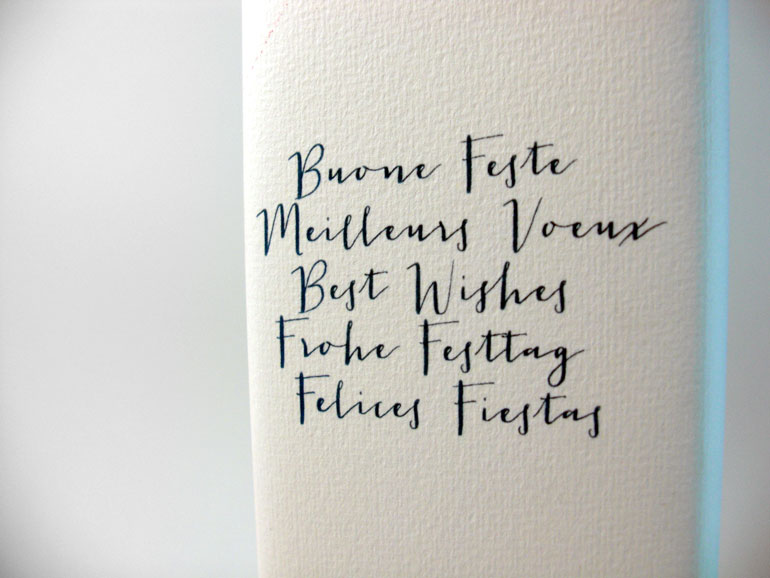 Buone Feste
Meilleurs Voeux
Best Wishes
Frohe Festtag
Felices Fiestas